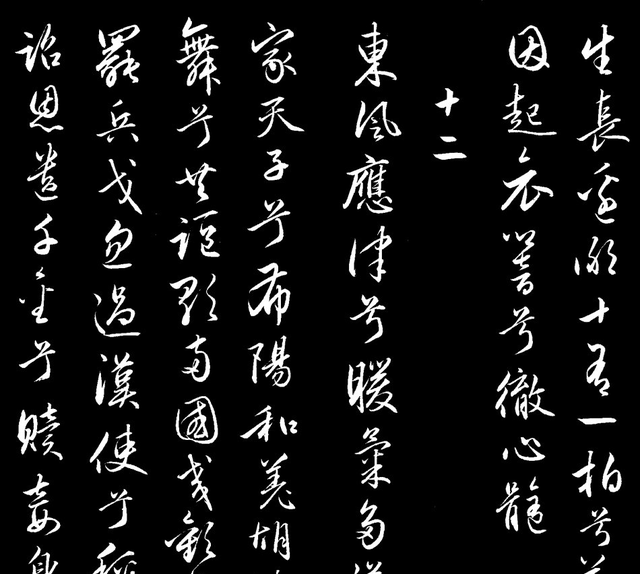 生長邊鄙十有一拍兮
因起哀響兮徹心髓
十二
東風應律兮暖氣多
家天子兮布陽和羌胡
舞兮共謳歌兩國交歡
罷兵戈忽遇漢使兮稱
詔恩遣千金兮贖妾身